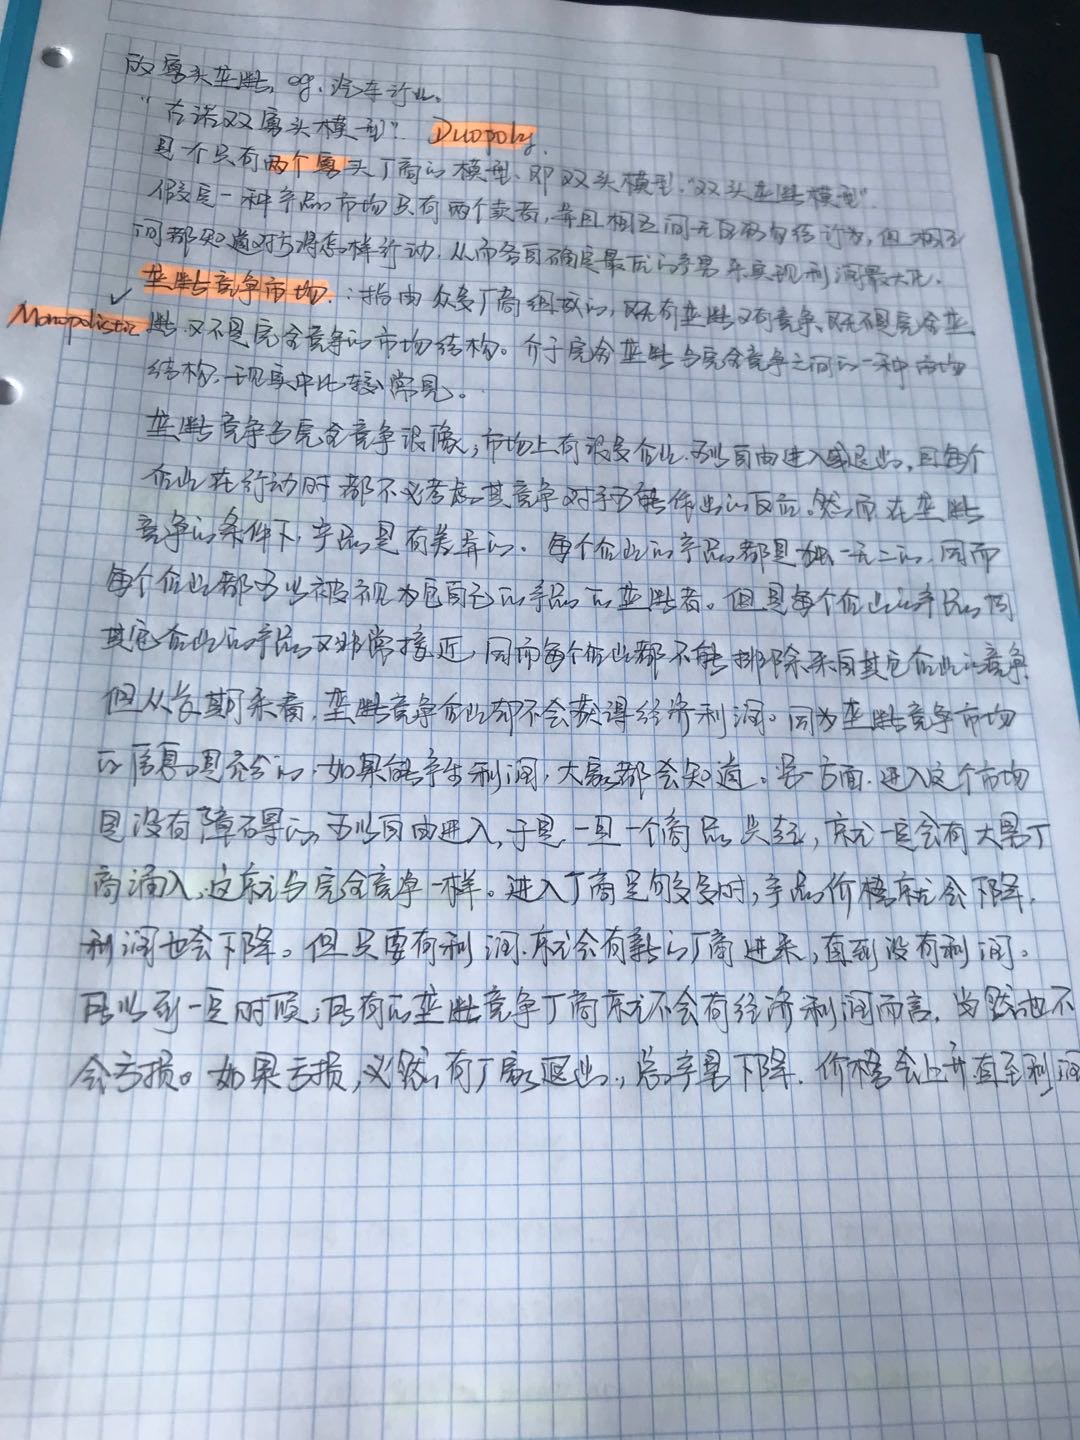 的寡头垄断, eg. 汽车行业。
"古诺双寡头模型". Duopoly.
是个只有两个寡头厂商的模型、即双头模型. "双头垄断模型".
假定一种产品市场只有两个卖者, 并且相互间无任何勾结行为, 但相互
间都知道对方将怎样行动, 从而各自确定最优的产量来实现利润最大化.
垄断竞争市场. : 指由众多厂商组成的, 既有垄断又有竞争、既不是完全垄
Monopolistic 断又不是完全竞争的市场结构。介于完全垄断与完全竞争之间的一种市场
结构, 现实中比较常见。
垄断竞争与完全竞争很像, 市场上有很多企业. 可以自由进入或退出, 且每个
企业在行动时都不必考虑其竞争对手可能作出的反应。然而在垄断
竞争的条件下, 产品是有差异的. 每个企业的产品都是独一无二的, 因而
每个企业都可以被视为它自己的产品的垄断者。但是每个企业的产品同
其它企业的产品又非常接近, 因而每个企业都不能排除来自其它企业的竞争
但从长期来看, 垄断竞争企业却不会获得经济利润。因为垄断竞争市场
的信息是充分的, 如果能产生利润, 大家都会知道。另一方面. 进入这个市场
是没有障碍的, 可以自由进入, 于是一旦一个商品兴起, 就一定会有大量厂
商涌入, 这就与完全竞争一样。进入厂商足够多时, 产品价格就会下降.
利润也会下降。但只要有利润. 就会有新的厂商进来, 直到没有利润。
所以到一定时候, 所有的垄断竞争厂商就不会有经济利润而言. 当然也不
会亏损。如果亏损, 必然有厂家退出., 总产量下降. 价格会上升直至利润